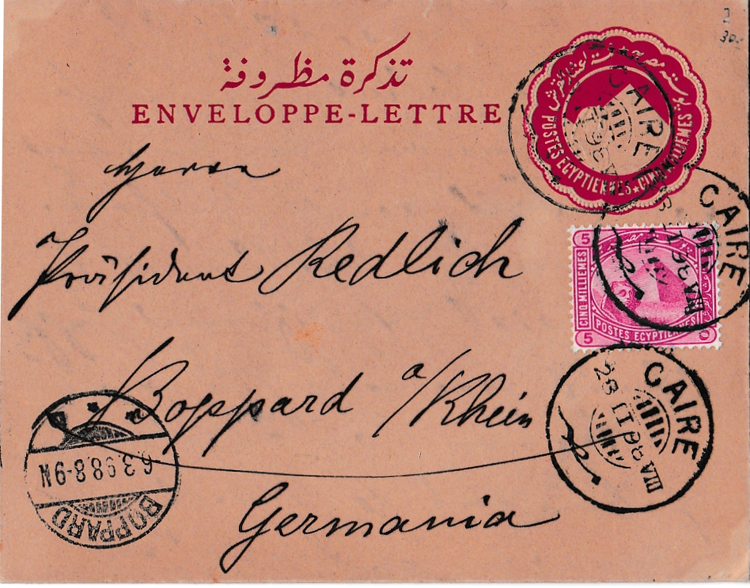 2
30.-
تذكرة مظروفة
ENVELOPPE-LETTRE
POSTES EGYPTIENNES CINQ MILLIEMES
CAIRE
Herrn
CAIRE
Präsident Redlich
5
CINQ MILLIEMES
POSTES EGYPTIENNES
5
Boppard a/Rhein
CAIRE
28 II 98 VIII
6.3.98.8-9N
BOPPARD
Germania